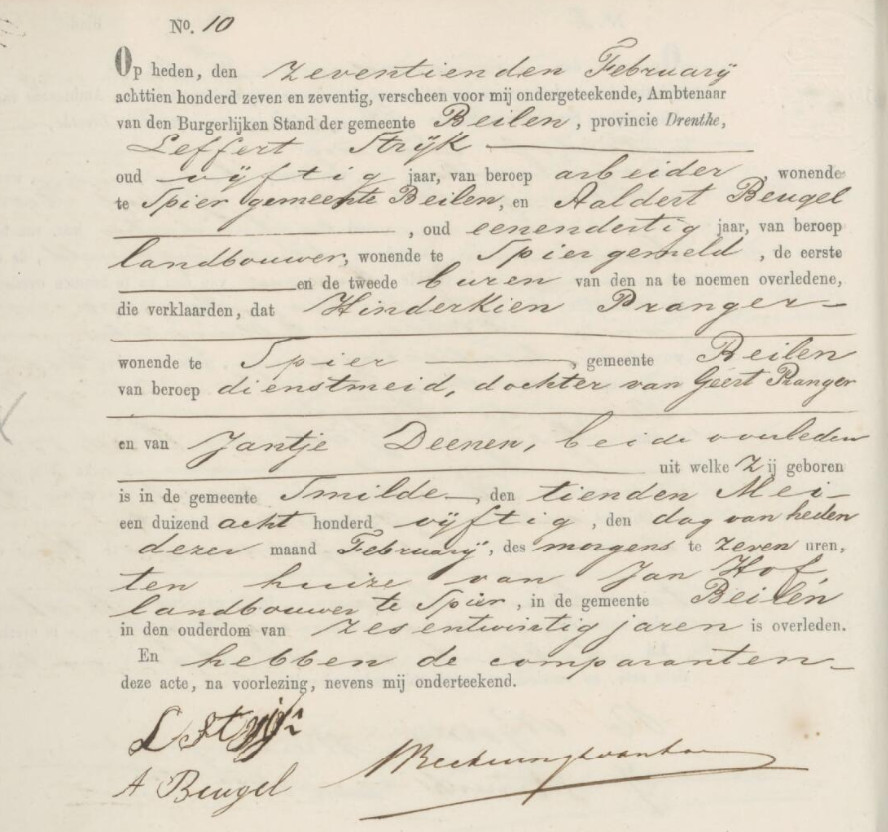 No. 10
Op heden, den zeventienden Februarij
achttien honderd zeven en zeventig, verscheen voor mij ondergeteekende, Ambtenaar
van den Burgerlijken Stand der gemeente Beilen, provincie Drenthe,
Leffert Strijk
oud vijftig jaar, van beroep arbeider, wonende
te Spier gemeente Beilen, en Aaldert Beugel
, oud eenendertig jaar, van beroep
landbouwer, wonende te Spier gemeld, de eerste
en de tweede buren van den na te noemen overledene,
die verklaarden, dat Hinderkien Pranger
wonende te Spier, gemeente Beilen
van beroep dienstmeid, dochter van Geert Pranger
en van Jantje Deenen, beide overleden
uit welke Zij geboren
is in de gemeente Smilde, den tienden Mei
een duizend acht honderd vijftig, den dag van heden
dezer maand Februarij, des morgens te zeven uren,
ten huize van Jan Hof,
landbouwer te Spier, in de gemeente Beilen
in den ouderdom van zesentwintig jaren is overleden.
En hebben de comparanten
deze acte, na voorlezing, nevens mij onderteekend.
L Strijk
A Beugel